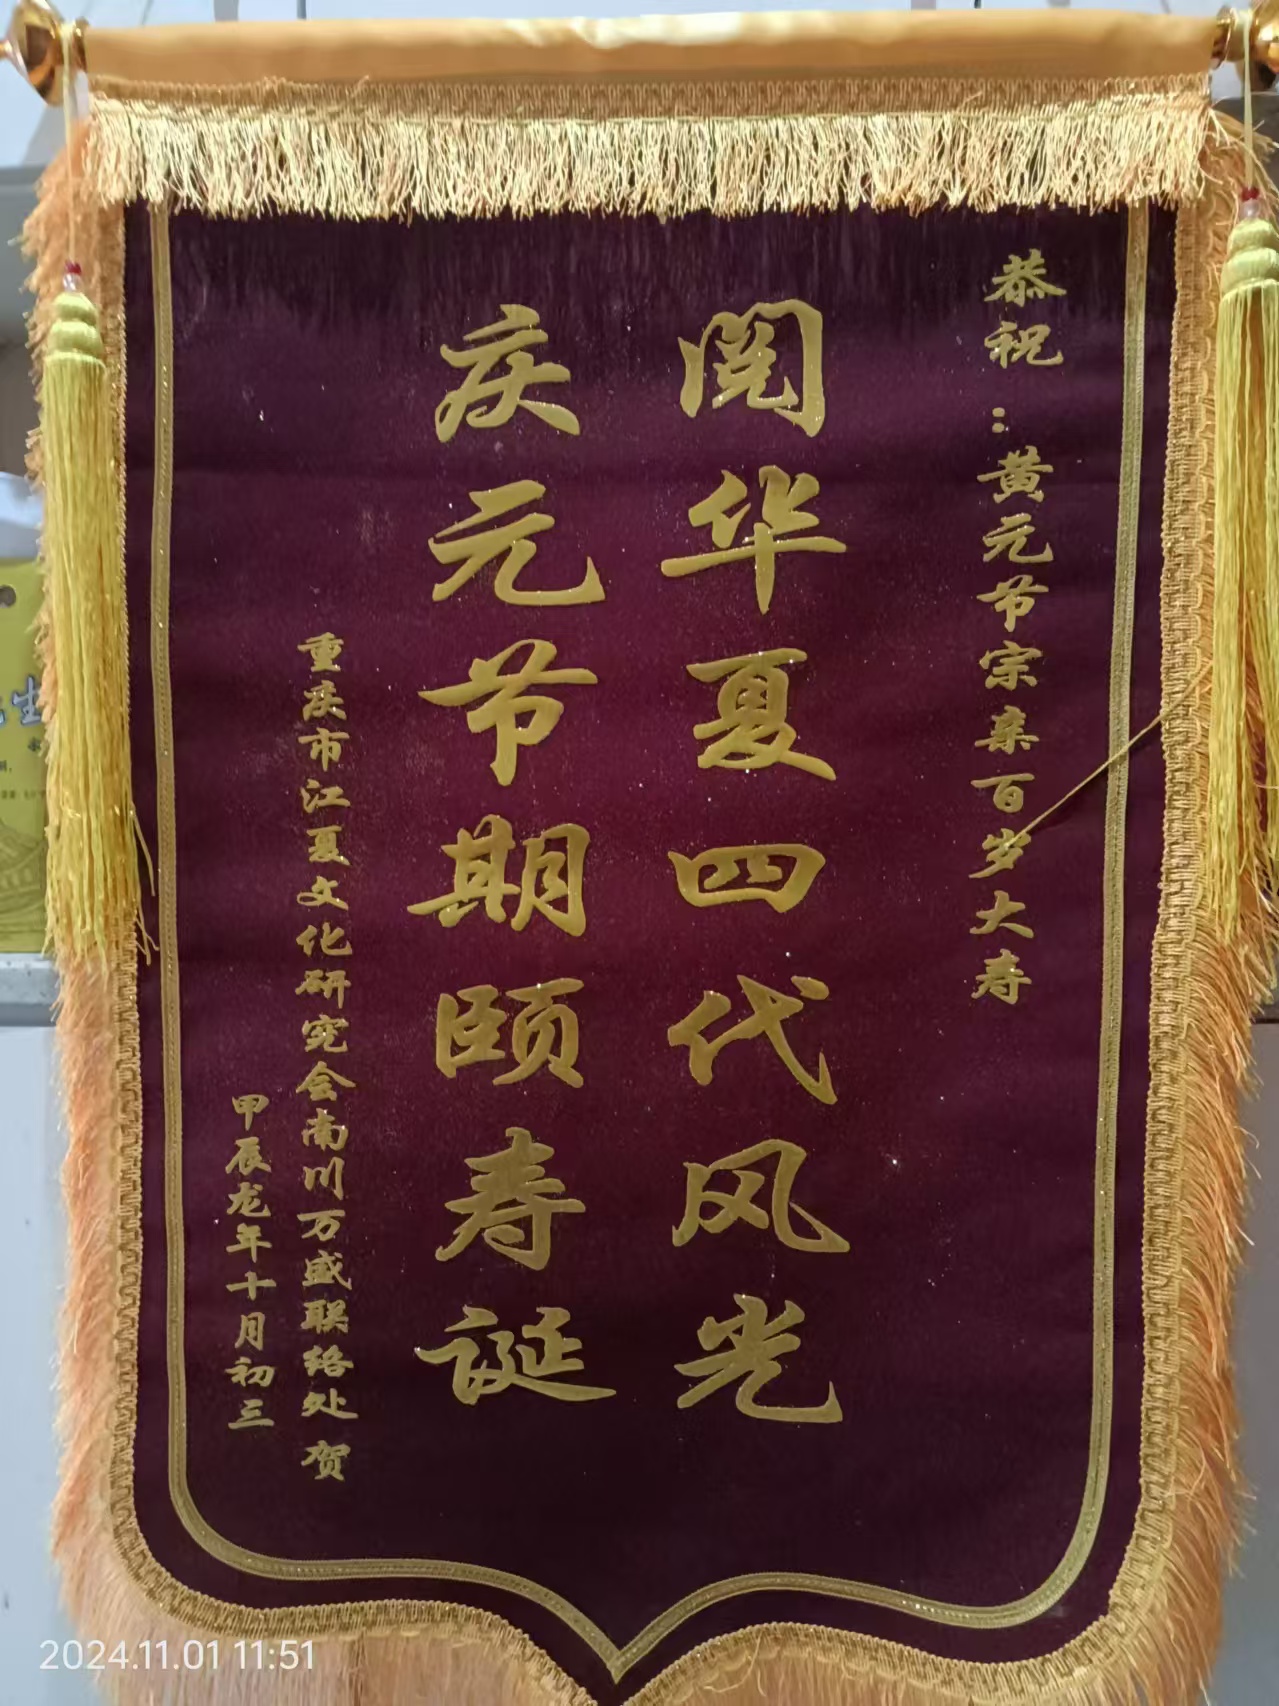 恭祝：黄元节宗亲百岁大寿
阅华夏四代风光
庆元节期颐寿诞
重庆市江夏文化研究会南川万盛联络处 贺
甲辰龙年十月初三
2024.11.01 11:51